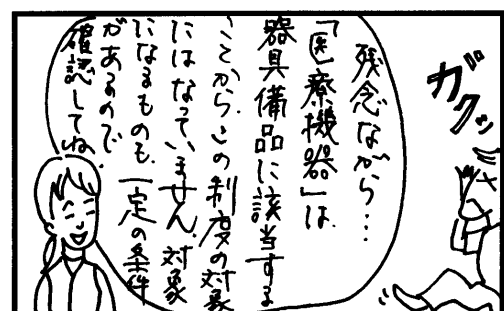 残念ながら…
「医療機器」は、
器具備品に該当する
ことから、この制度の対象
にはなっていません。対象
になるものも、一定の条件
があるので
確認してね。
ガクッ